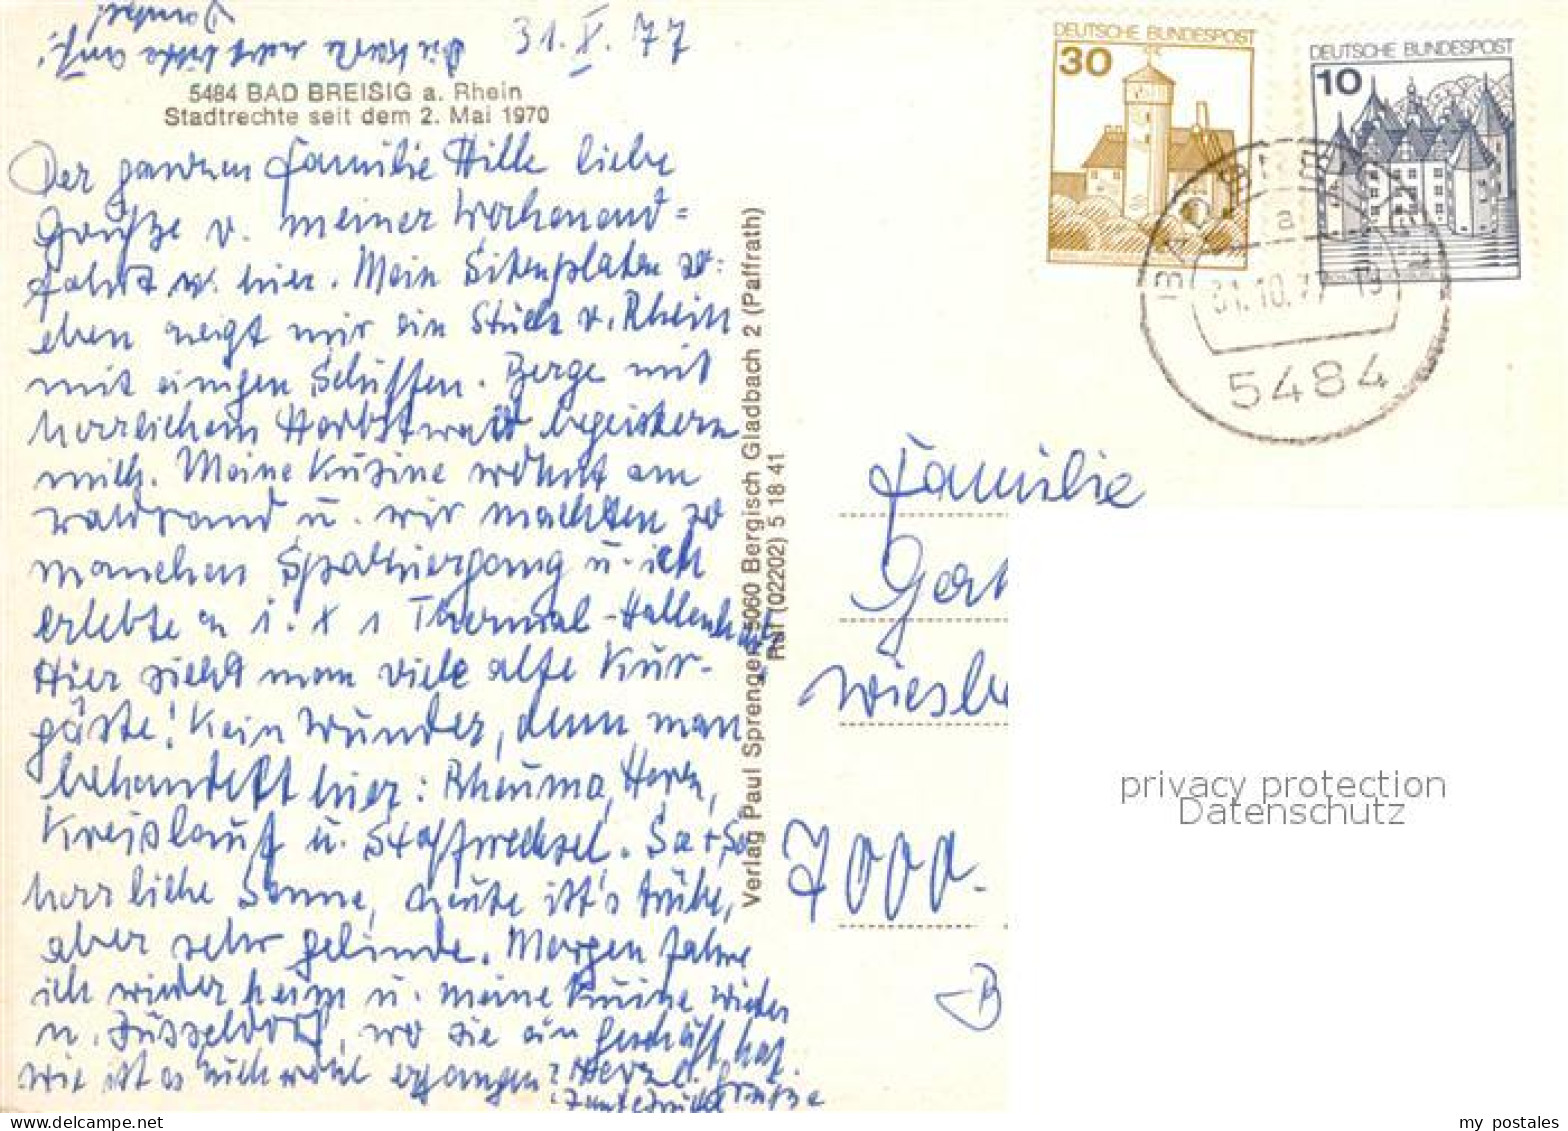 31. X. 77
Die Karte nicht bitte aufh.
5484 BAD BREISIG a. Rhein
Stadtrechte seit dem 2. Mai 1970
Der ganzen Familie Hille liebe
Grüße v. meiner Wochenend=
fahrt v. hier. Mein Sitzenplatz so:
eben zeigt mir ein Stück v. Rhein
mit einigen Schiffen. Berge mit
herrlichem Herbstwald begeistern
mich. Meine Kusine wohnt am
Waldrand u. wir machten so
manchen Spaziergang u. ich
erlebte 1 x 1 Thermal-Hallenbad
Hier sieht man viele alte Kur-
gäste! Kein Wunder, denn man
behandelt hier: Rheuma, Herz,
Kreislauf u. Stoffwechsel. Sa + So
herrliche Sonne, heute ist's trübe,
aber sehr gelinde. Morgen fahre
ich wieder heim u. meine Kusine wieder
n. Düsseldorf, wo sie ein Geschäft hat.
Wie ist es Euch wohl ergangen? Herzl. Grüße
Verlag Paul Sprenger, 5060 Bergisch Gladbach 2 (Paffrath)
Ruf (02202) 5 18 41
DEUTSCHE BUNDESPOST
30
DEUTSCHE BUNDESPOST
10
31.10.77-19
5484
Familie
Wiesb
7000
privacy protection
Datenschutz
my postales